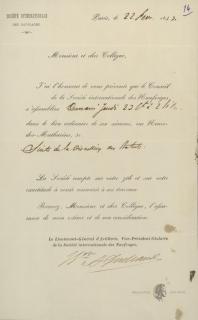 SOCIÉTÉ INTERNATIONALE
DES NAUFRAGES
Paris, le 22
14
Monsieur et cher Collègue,
J'ai l'honneur de vous prévenir que le Conseil
de la Société internationale des Naufrages
s'assemblera Demain Jeudi 23
dans le lieu ordinaire de ses séances, rue Neuve-
des-Mathurins,
Suite de la discussion des Statuts
La Société compte sur votre zèle et sur votre
exactitude à vouloir concourir à ses travaux
Recevez, Monsieur et cher Collègue, l'as-
surance de mon estime et de ma considération.
Le Lieutenant-Général d'Artillerie, Vice-Président titulaire
de la Société internationale des Naufrages,